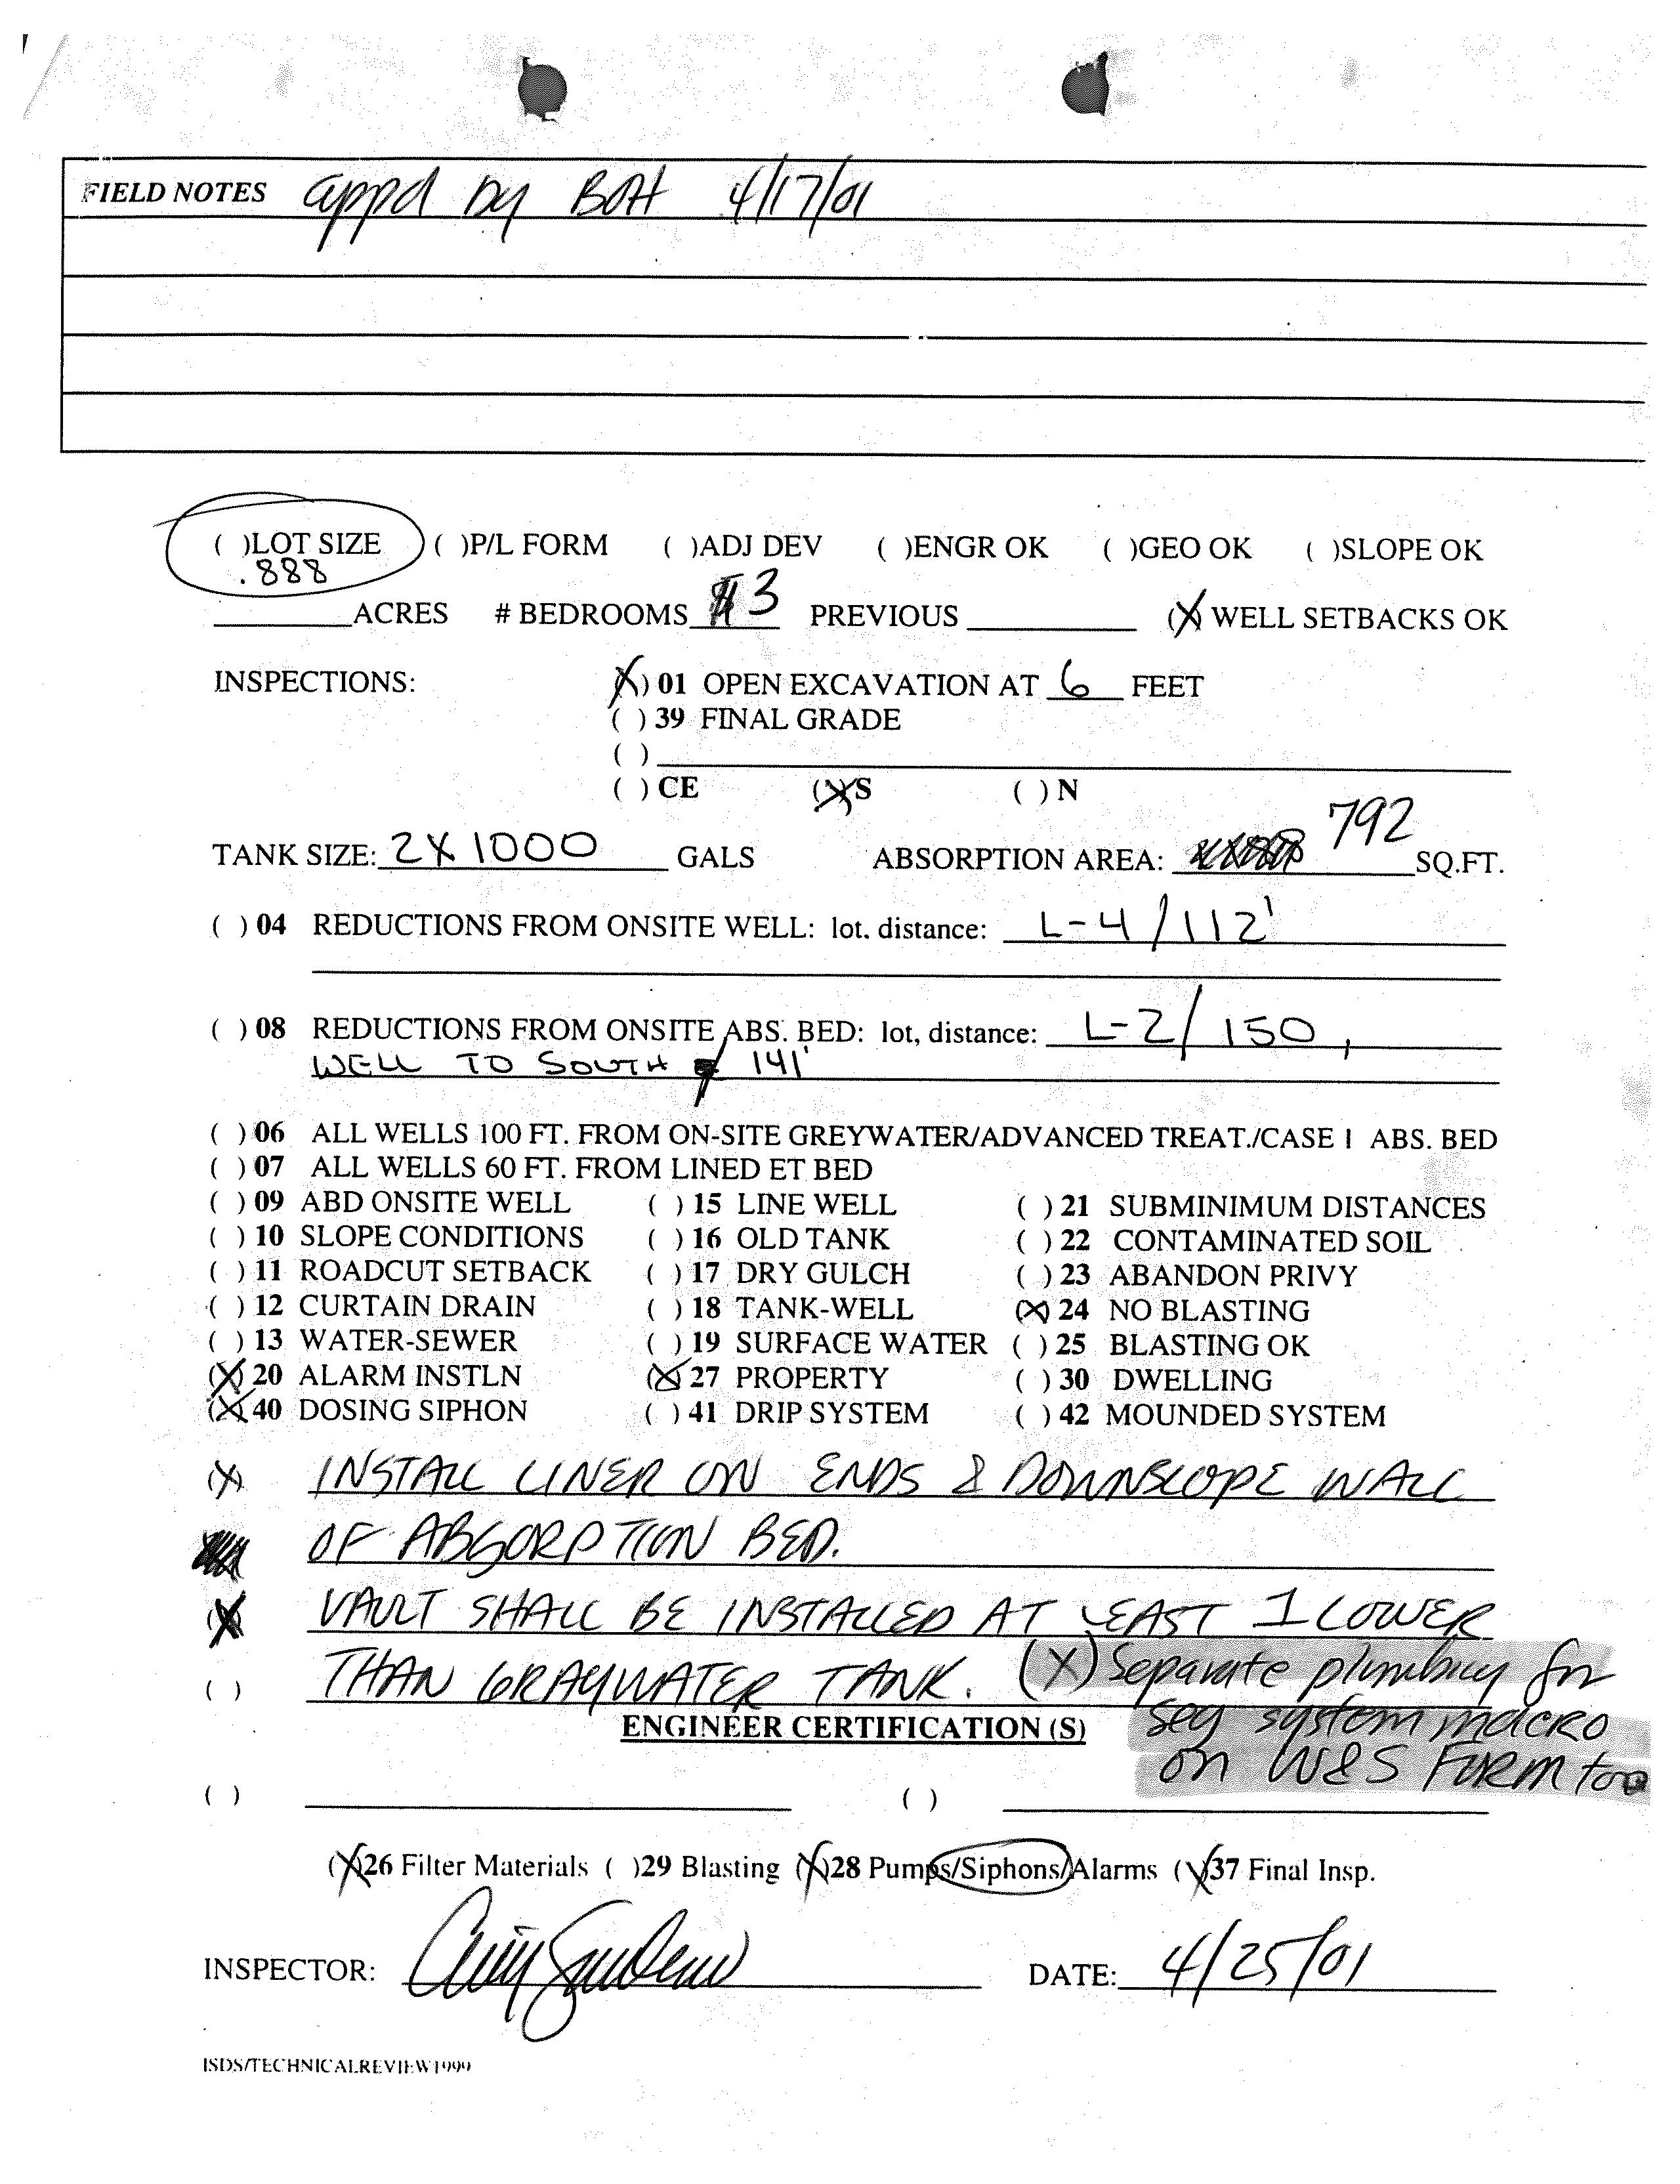 FIELD NOTES appd by BOH 4/17/01
( )LOT SIZE ( )P/L FORM ( )ADJ DEV ( )ENGR OK ( )GEO OK ( )SLOPE OK
.888
______ACRES # BEDROOMS 3 PREVIOUS ______ (X) WELL SETBACKS OK
INSPECTIONS: (X) 01 OPEN EXCAVATION AT 6 FEET
( ) 39 FINAL GRADE
( ) ______
( ) CE (X)S ( ) N
TANK SIZE: 2X1000 GALS ABSORPTION AREA: 792 SQ.FT.
( ) 04 REDUCTIONS FROM ONSITE WELL: lot. distance: L-4/112'
( ) 08 REDUCTIONS FROM ONSITE ABS. BED: lot, distance: L-2/150,
WELL TO SOUTH 141'
( ) 06 ALL WELLS 100 FT. FROM ON-SITE GREYWATER/ADVANCED TREAT./CASE I ABS. BED
( ) 07 ALL WELLS 60 FT. FROM LINED ET BED
( ) 09 ABD ONSITE WELL ( ) 15 LINE WELL ( ) 21 SUBMINIMUM DISTANCES
( ) 10 SLOPE CONDITIONS ( ) 16 OLD TANK ( ) 22 CONTAMINATED SOIL
( ) 11 ROADCUT SETBACK ( ) 17 DRY GULCH ( ) 23 ABANDON PRIVY
( ) 12 CURTAIN DRAIN ( ) 18 TANK-WELL (X) 24 NO BLASTING
( ) 13 WATER-SEWER ( ) 19 SURFACE WATER ( ) 25 BLASTING OK
(X) 20 ALARM INSTLN (X) 27 PROPERTY ( ) 30 DWELLING
(X) 40 DOSING SIPHON ( ) 41 DRIP SYSTEM ( ) 42 MOUNDED SYSTEM
(X) INSTALL LINER ON ENDS & DOWNSLOPE WALL
OF ABSORPTION BED.
(X) VAULT SHALL BE INSTALLED AT LEAST 1 LOWER
( ) THAN GRAYWATER TANK. (X) Separate plumbing for
ENGINEER CERTIFICATION (S) seg system macro
on W&S FORM too
( ) ______ ( ) ______
(X)26 Filter Materials ( )29 Blasting (X)28 Pumps/Siphons/Alarms (X)37 Final Insp.
INSPECTOR: DATE: 4/25/01
ISDS/TECHNICALREVIEW1999